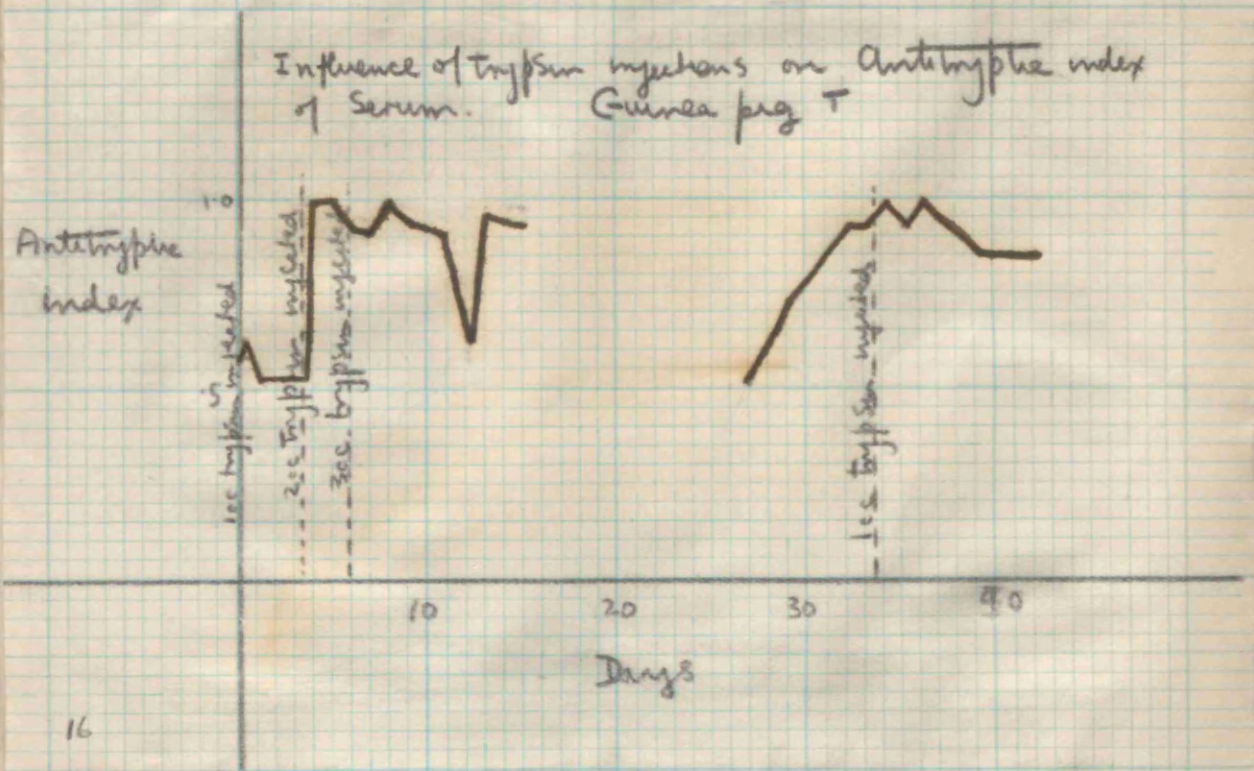 Influence of Trypsin injections on Antitryptic index
of Serum. Guinea pig T
1.0
Antitryptic
index
.5
1cc trypsin injected
2cc Trypsin injected
3cc trypsin injected
1cc trypsin injected
10 20 30 40
Days
16